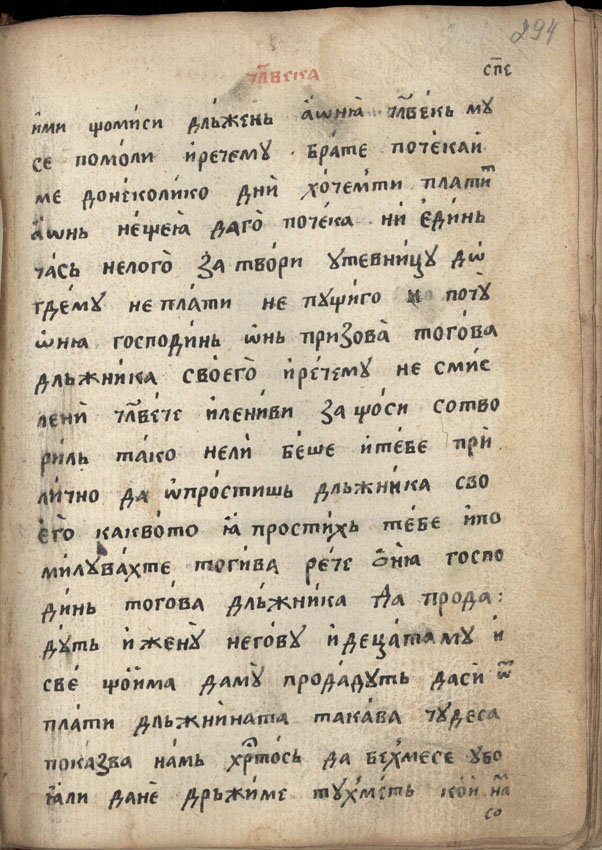 294
чл҃века сп҃е
и҆́ми що́миси дль́жень а҆́ѡнꙗ҆ чл҃ве́кь мꙋ
се помо́ли и҆́речемꙋ бра́те поче́каи҆
ме доне́коли́ко дни҆̀ хо́чемти плати̑т
а҆́ѡнь не́щеꙗ҆ даго̀ поче́ка ни҆ е҆ди́нь
ча́сь нелого̀ затво́ри ꙋтевни́цꙋ дѡ̀
где́мꙋ не пла́ти не пꙋщи́го и҆ почꙋ̀
ѡ҆́нꙗ господи́нь ѡ҆́нь призова̀ тогѡ́ва
дльжни́ка своего̀ и҆ре́чемꙋ не сми́с
лени҆ чл҃ве́че и҆лени́ви защо́си сотво
ри́ль та́ко нелѝ бе́ше и҆те́бе при҆
ли́чно да ѡ҆прости́шь дльжни́ка сво
е҆го̀ какво́то ꙗ҆ прости́хь те́бе и҆по
ми́лꙋва́хте тоги́ва ре́че ѡ҆́нꙗ госпо
ди́нь того́ва дльжни́ка да прода:
дꙋть и҆ женꙋ̀ него́вꙋ и҆ деца́тамꙋ и҆
све́ що҆има дамꙋ̀ прода́дꙋть даси҆ ѿ
пла́ти дльжни́ната така́ва чꙋ́деса
пока́зва на́мь хр҃то́сь да бе́хмесе ꙋбо
ꙗ҆́ли данѐ дрьжи́ме тꙋхме́ть ко́и на
со